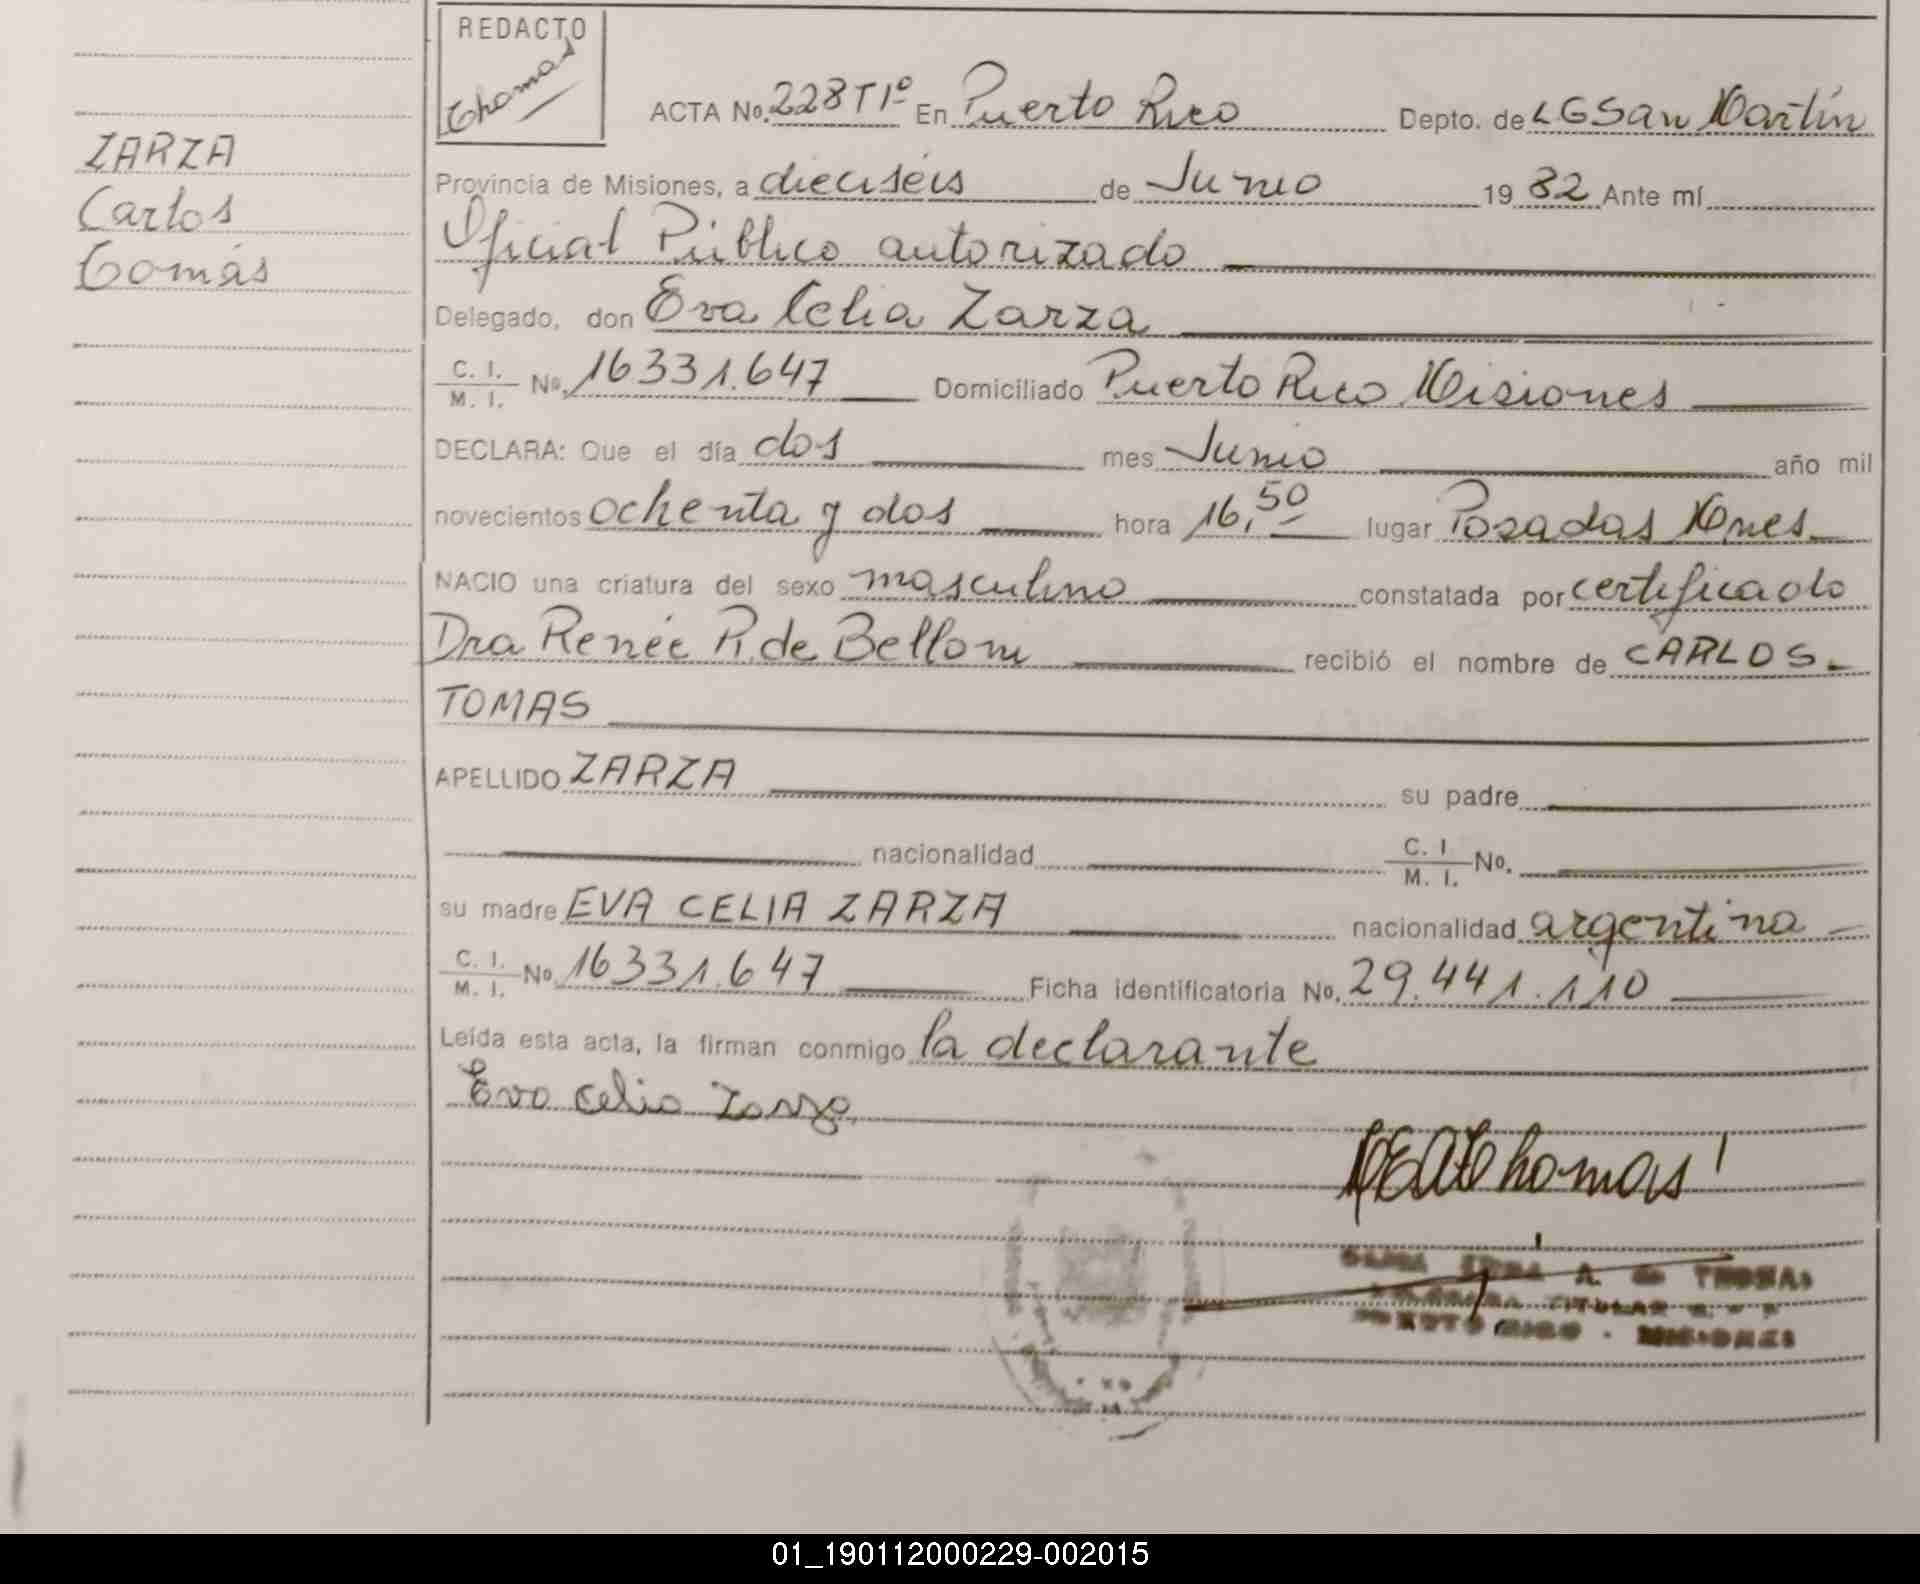 REDACTO
Thomas
ZARZA
Carlos
Tomás
ACTA No. 228 T1º En Puerto Rico Depto. de LGSan Martín
Provincia de Misiones, a dieciséis de Junio 1982 Ante mí
Oficial Público autorizado
Delegado, don Eva Celia Zarza
C. I. / M. I. No. 16331.647 Domiciliado Puerto Rico Misiones
DECLARA: Que el día dos mes Junio año mil
novecientos ochenta y dos hora 16,50 lugar Posadas Mnes
NACIO una criatura del sexo masculino constatada por certificado
Dra Renée R. de Belloni recibió el nombre de CARLOS
TOMAS
APELLIDO ZARZA su padre
nacionalidad C. I. / M. I. No.
su madre EVA CELIA ZARZA nacionalidad argentina
C. I. / M. I. No. 16331.647 Ficha identificatoria No. 29.441.110
Leída esta acta, la firman conmigo la declarante
Eva Celia Zarza
Thomas
A. de THOMAS
TITULAR
PUERTO RICO - MISIONES
01_190112000229-002015